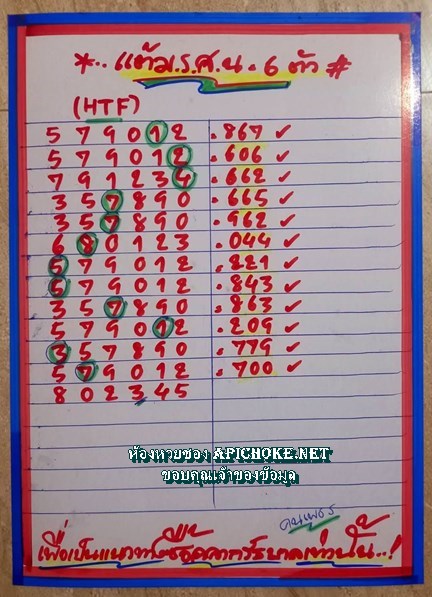 *.. แต้ม.ร.ศ.น. 6 ตัว #
(HTF)
5 7 9 0 1 2 . 867 ✓
5 7 9 0 1 2 . 606 ✓
7 9 1 2 3 4 . 662 ✓
3 5 7 8 9 0 . 665 ✓
3 5 7 8 9 0 . 962 ✓
6 8 0 1 2 3 . 044 ✓
5 7 9 0 1 2 . 221 ✓
5 7 9 0 1 2 . 843 ✓
3 5 7 8 9 0 . 863 ✓
5 7 9 0 1 2 . 209 ✓
3 5 7 8 9 0 . 779 ✓
5 7 9 0 1 2 . 700 ✓
8 0 2 3 4 5
ห้องหวยซอง APICHOKE.NET
ขอบคุณเจ้าของข้อมูล
คนเพชร
เพื่อเป็นแนวทางซื้อสลากรัฐบาลเท่านั้น..!